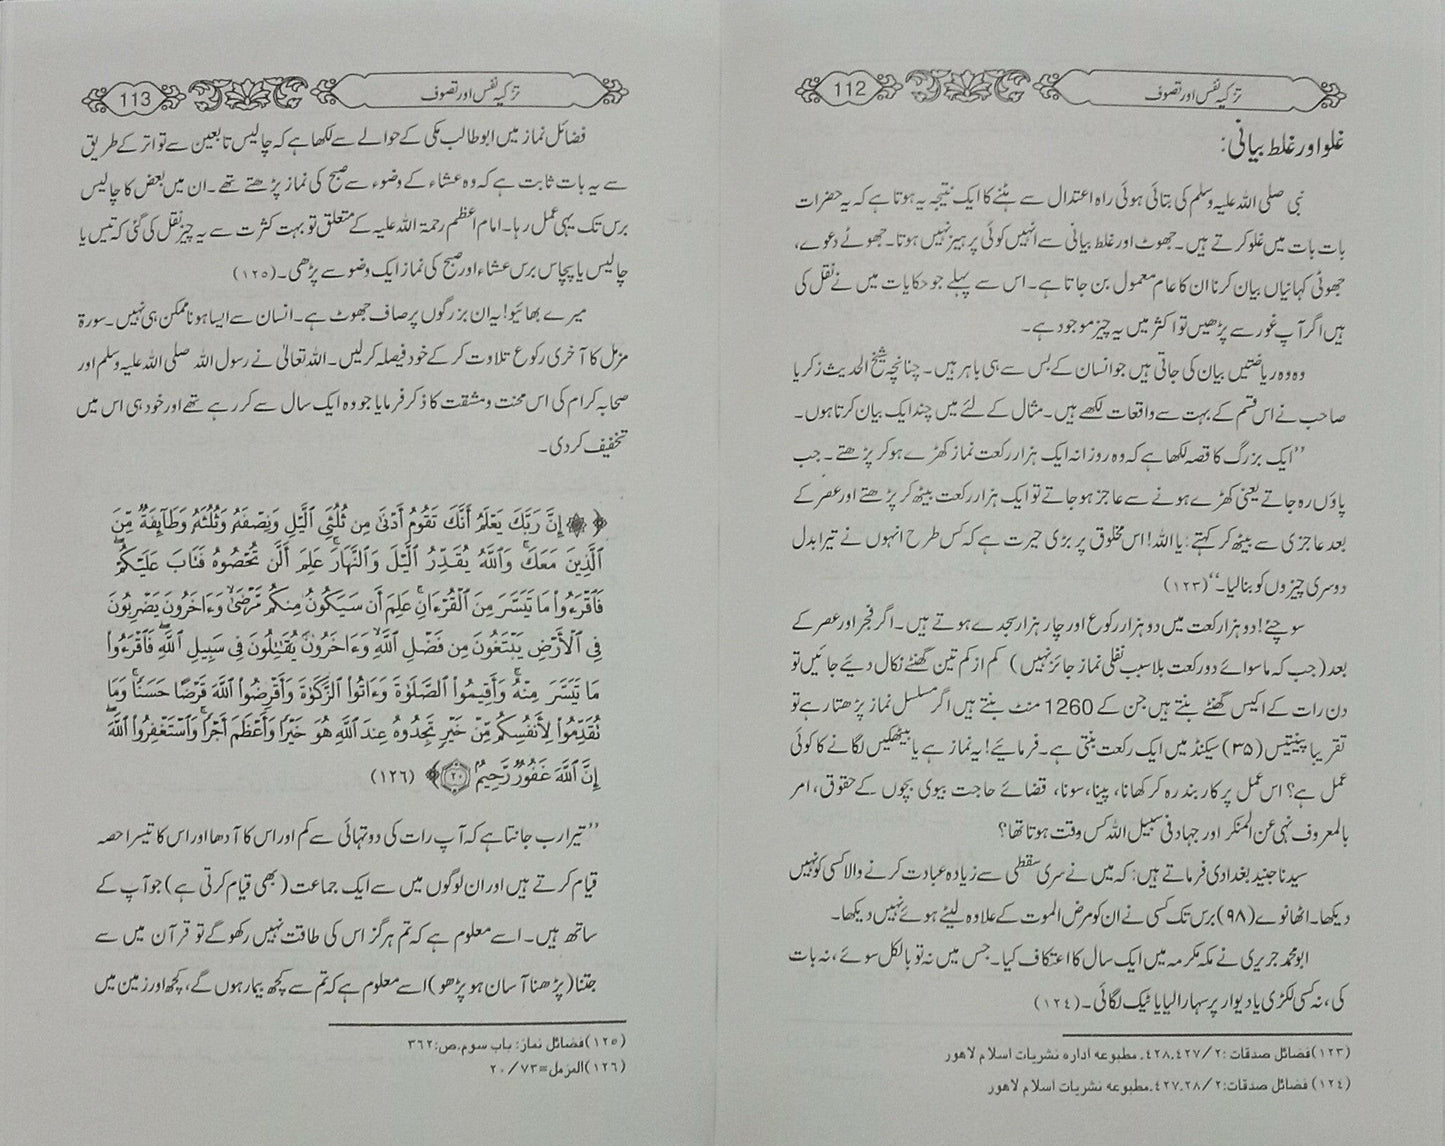 تزکیہ نفس اور تصوف
112
غلو اور غلط بیانی:
نبی صلی اللہ علیہ وسلم کی بتائی ہوئی راہ اعتدال سے ہٹنے کا ایک نتیجہ یہ ہوتا ہے کہ یہ حضرات
بات بات میں غلو کرتے ہیں۔ جھوٹ اور غلط بیانی سے انہیں کوئی پرہیز نہیں ہوتا۔ جھوٹے دعوے،
جھوٹی کہانیاں بیان کرنا ان کا عام معمول بن جاتا ہے۔ اس سے پہلے جو حکایات میں نے نقل کی
ہیں اگر آپ غور سے پڑھیں تو اکثر میں یہ چیز موجود ہے۔
وہ وہ ریاضتیں بیان کی جاتی ہیں جو انسان کے بس سے ہی باہر ہیں۔ چنانچہ شیخ الحدیث زکریا
صاحب نے اس قسم کے بہت سے واقعات لکھے ہیں۔ مثال کے لئے میں چند ایک بیان کرتا ہوں۔
’’ایک بزرگ کا قصہ لکھا ہے کہ وہ روزانہ ایک ہزار رکعت نماز کھڑے ہو کر پڑھتے۔ جب
پاؤں رہ جاتے یعنی کھڑے ہونے سے عاجز ہو جاتے تو ایک ہزار رکعت بیٹھ کر پڑھتے اور عصر کے
بعد عاجزی سے بیٹھ کر کہتے: یا اللہ! اس مخلوق پر بڑی حیرت ہے کہ کس طرح انہوں نے تیرا بدل
دوسری چیزوں کو بنا لیا۔‘‘ (۱۲۳)
سوچئے! دو ہزار رکعت میں دو ہزار رکوع اور چار ہزار سجدے ہوتے ہیں۔ اگر فجر اور عصر کے
بعد (جب کہ ماسوائے دو رکعت بلا سبب نفلی نماز جائز نہیں) کم از کم تین گھنٹے نکال دئیے جائیں تو
دن رات کے اکیس گھنٹے بنتے ہیں جن کے 1260 منٹ بنتے ہیں اگر مسلسل نماز پڑھتا رہے تو
تقریبا پینتیس (۳۵) سیکنڈ میں ایک رکعت بنتی ہے۔ فرمائیے! یہ نماز ہے یا بیٹھکیں لگانے کا کوئی
عمل ہے؟ اس عمل پر کاربند رہ کر کھانا، پینا، سونا، قضائے حاجت بیوی بچوں کے حقوق، امر
بالمعروف نہی عن المنکر اور جہاد فی سبیل اللہ کس وقت ہوتا تھا؟
سیدنا جنید بغدادی فرماتے ہیں: کہ میں نے سری سقطی سے زیادہ عبادت کرنے والا کسی کو نہیں
دیکھا۔ اٹھانوے (۹۸) برس تک کسی نے ان کو مرض الموت کے علاوہ لیٹے ہوئے نہیں دیکھا۔
ابو محمد جریری نے مکہ مکرمہ میں ایک سال کا اعتکاف کیا۔ جس میں نہ تو بالکل سوئے، نہ بات
کی، نہ کسی لکڑی یا دیوار پر سہارا لیا یا ٹیک لگائی۔ (۱۲٤)
(۱۲۳) فضائل صدقات: ۲/ ۴۲۸،۴۲۷۔ مطبوعہ ادارہ نشریات اسلام لاہور
(۱۲٤) فضائل صدقات: ۲/ ۴۲۷،۲۸۔ مطبوعہ نشریات اسلام لاہور
تزکیہ نفس اور تصوف
113
فضائل نماز میں ابو طالب مکی کے حوالے سے لکھا ہے کہ چالیس تابعین سے تواتر کے طریق
سے یہ بات ثابت ہے کہ وہ عشاء کے وضوء سے صبح کی نماز پڑھتے تھے۔ ان میں بعض کا چالیس
برس تک یہی عمل رہا۔ امام اعظم رحمۃ اللہ علیہ کے متعلق تو بہت کثرت سے یہ چیز نقل کی گئی کہ تیس یا
چالیس یا پچاس برس عشاء اور صبح کی نماز ایک وضو سے پڑھی۔ (۱۲۵)
میرے بھائیو! یہ ان بزرگوں پر صاف جھوٹ ہے۔ انسان سے ایسا ہونا ممکن ہی نہیں۔ سورۃ
مزمل کا آخری رکوع تلاوت کر کے خود فیصلہ کر لیں۔ اللہ تعالیٰ نے رسول اللہ صلی اللہ علیہ وسلم اور
صحابہ کرام کی اس محنت و مشقت کا ذکر فرمایا جو وہ ایک سال سے کر رہے تھے اور خود ہی اس میں
تخفیف کر دی۔
﴿ ۞ إِنَّ رَبَّكَ يَعْلَمُ أَنَّكَ تَقُومُ أَدْنَىٰ مِن ثُلُثَيِ ٱلَّيْلِ وَنِصْفَهُۥ وَثُلُثَهُۥ وَطَآئِفَةٌ مِّنَ
ٱلَّذِينَ مَعَكَ ۚ وَٱللَّهُ يُقَدِّرُ ٱلَّيْلَ وَٱلنَّهَارَ ۚ عَلِمَ أَلَّن تُحْصُوهُ فَتَابَ عَلَيْكُمْ ۖ
فَٱقْرَءُوا۟ مَا تَيَسَّرَ مِنَ ٱلْقُرْءَانِ ۚ عَلِمَ أَن سَيَكُونُ مِنكُم مَّرْضَىٰ ۙ وَءَاخَرُونَ يَضْرِبُونَ
فِى ٱلْأَرْضِ يَبْتَغُونَ مِن فَضْلِ ٱللَّهِ ۙ وَءَاخَرُونَ يُقَـٰتِلُونَ فِى سَبِيلِ ٱللَّهِ ۖ فَٱقْرَءُوا۟
مَا تَيَسَّرَ مِنْهُ ۚ وَأَقِيمُوا۟ ٱلصَّلَوٰةَ وَءَاتُوا۟ ٱلزَّكَوٰةَ وَأَقْرِضُوا۟ ٱللَّهَ قَرْضًا حَسَنًا ۚ وَمَا
تُقَدِّمُوا۟ لِأَنفُسِكُم مِّنْ خَيْرٍ تَجِدُوهُ عِندَ ٱللَّهِ هُوَ خَيْرًا وَأَعْظَمَ أَجْرًا ۚ وَٱسْتَغْفِرُوا۟ ٱللَّهَ ۖ
إِنَّ ٱللَّهَ غَفُورٌ رَّحِيمٌۢ ۝٢٠ ﴾ (۱۲٦)
’’تیرا رب جانتا ہے کہ آپ رات کی دو تہائی سے کم اور اس کا آدھا اور اس کا تیسرا حصہ
قیام کرتے ہیں اور ان لوگوں میں سے ایک جماعت (بھی قیام کرتی ہے) جو آپ کے
ساتھ ہیں۔ اسے معلوم ہے کہ تم ہرگز اس کی طاقت نہیں رکھو گے تو قرآن میں سے
جتنا (پڑھنا آسان ہو پڑھو) اسے معلوم ہے کہ تم سے کچھ بیمار ہوں گے، کچھ اور زمین میں
(۱۲۵) فضائل نماز: باب سوم، ص: ۳۶۲
(۱۲٦) المزمل=۷۳/ ۲۰